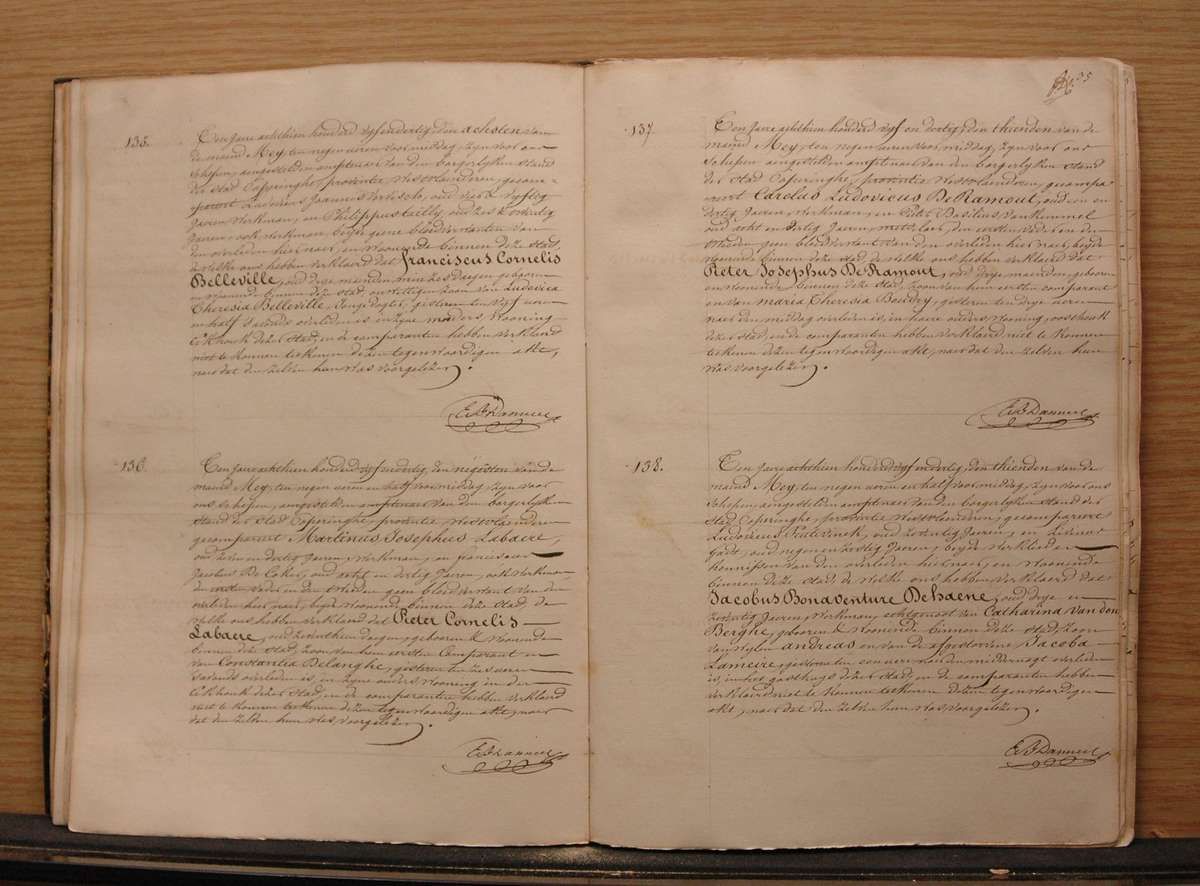 135.
Ten Jare achthien honderd vyf en dertig, den achsten van
de maend Mey, ten negen uren voor middag, zyn voor ons
schepen, aengestelden amptenaer van den borgerlyken stand
der stad Poperinghe, provintie Westvlaenderen, gecom-
pareert Ludovicus Joannes, oud vier & vyftig
Jaeren, Werkman, en Philippus Cailly, oud zes & veertig
Jaeren, ook werkman, beyde geene bloedverwanten van
den overleden hier naer, en woonende binnen deze stad,
de welke ons hebben verklaerd dat franciscus Cornelis
Belleville, oud drye maenden min zes daegen, geboren
en woonende binnen deze stad, onwettigen zoon van Ludovica
Theresia Belleville, Jonge dogter, gisteren ten vyf uren
en half s'avonds overleden is in zyne moeders wooning
dezer stad, en de comparanten hebben verklaerd
niet te konnen teekenen dezen tegenwoordigen akt,
naer dat den zelven hun was voorgelezen.
E. J. Danneel
136.
Ten Jare achthien honderd vyf en dertig, den negensten van de
maend Mey, ten negen uren en half voormiddag, zyn voor
ons schepen, aengestelden amptenaer van den borgerlyken
stand der stad Poperinghe, provintie Westvlaenderen
gecompareert Martinus Josephus Labaere,
oud zeven en dertig Jaeren, werkman, en franciscus
Jacobus De Coker, oud acht en dertig Jaeren, ook werkman,
den eersten vader en den tweeden geen bloedverwant van den
overleden hier naer, beyde woonende binnen deze stad, de
welke ons hebben verklaerd dat Pieter Cornelis
Labaere, oud zeventhien daegen, geboren & woonende
binnen deze stad, zoon van hun eersten Comparant en
van Constantia Delanghe, gisteren ten zes uren
s'avonds overleden is, in zyne ouders wooning in den
dezer stad, en de comparanten hebben verklaerd
niet te konnen teekenen dezen tegenwoordigen akt, naer
dat den zelven hun was voorgelezen.
E. J. Danneel
35
137
Ten Jare achthien honderd vyf en dertig, den thienden van de
maend Mey, ten negen uren voor middag, zyn voor ons
schepen aengestelden amptenaer van den borgerlyken stand
der stad Poperinghe, provintie Westvlaenderen, gecompa-
reert Carolus Ludovicus De Ramout, oud een en
dertig Jaeren, Werkman, en Pieter Basilius Vankemmel
oud acht en dertig Jaeren, metselaer, den eersten vader en den
tweeden geen bloedverwant van den overleden hier naer, beyde
woonende binnen deze stad, de welke ons hebben verklaerd dat
Pieter Josephus De Ramout, oud drye maenden, geboren
en woonende binnen deze stad, zoon van hun eersten comparant
en van maria Theresia Boudry, gisteren ten drye uren
naer den middag overleden is, in zyne ouders wooning, oosthoek
dezer stad, en de comparanten hebben verklaerd niet te konnen
teekenen dezen tegenwoordigen akt, naer dat den zelven hun
was voorgelezen.
E. J. Danneel
138.
Ten Jare achthien honderd vyf en dertig, den thienden van de
maend Mey, ten negen uren en half voor middag, zyn voor ons
schepen, aengestelden amptenaer van den borgerlyken stand der
stad Poperinghe, provintie Westvlaenderen, gecompareert
Ludovicus, oud zeventig Jaeren, en Livinus
oud negen en zestig Jaeren, beyde werklieden
kennissen van den overleden hier naer, en woonende
binnen deze stad, de welke ons hebben verklaerd dat
Jacobus Bonaventure Dehaene, oud drye en
zeventig Jaeren, werkman, echtgenoot van Catharina van den
Berghe, geboren & woonende binnen deze stad, zoon
van wylen andreas en van de afgestorvene Jacoba
Lameire, gisteren een uer naer den middernagt overleden
is, in het gasthuys dezer stad, en de comparanten hebben
verklaerd niet te konnen teekenen dezen tegenwoordigen
akt, naer dat den zelven hun was voorgelezen.
E. J. Danneel